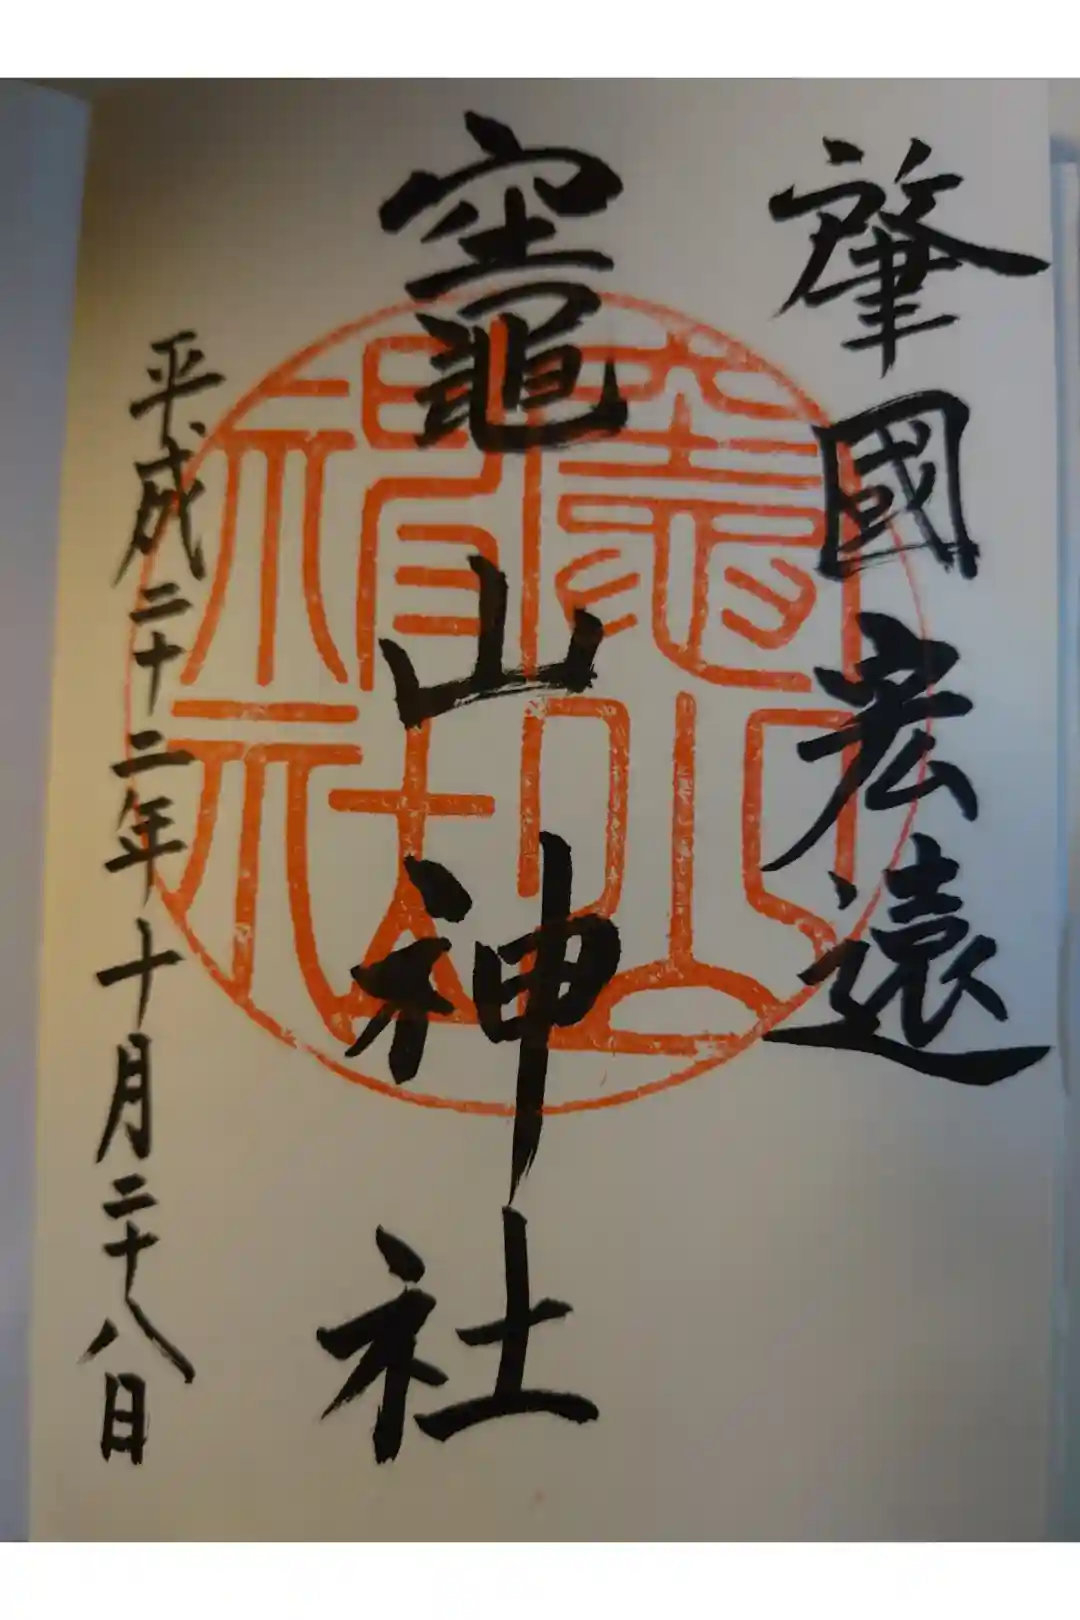 肇國宏遠
竈山神社
平成二十二年十月二十八日